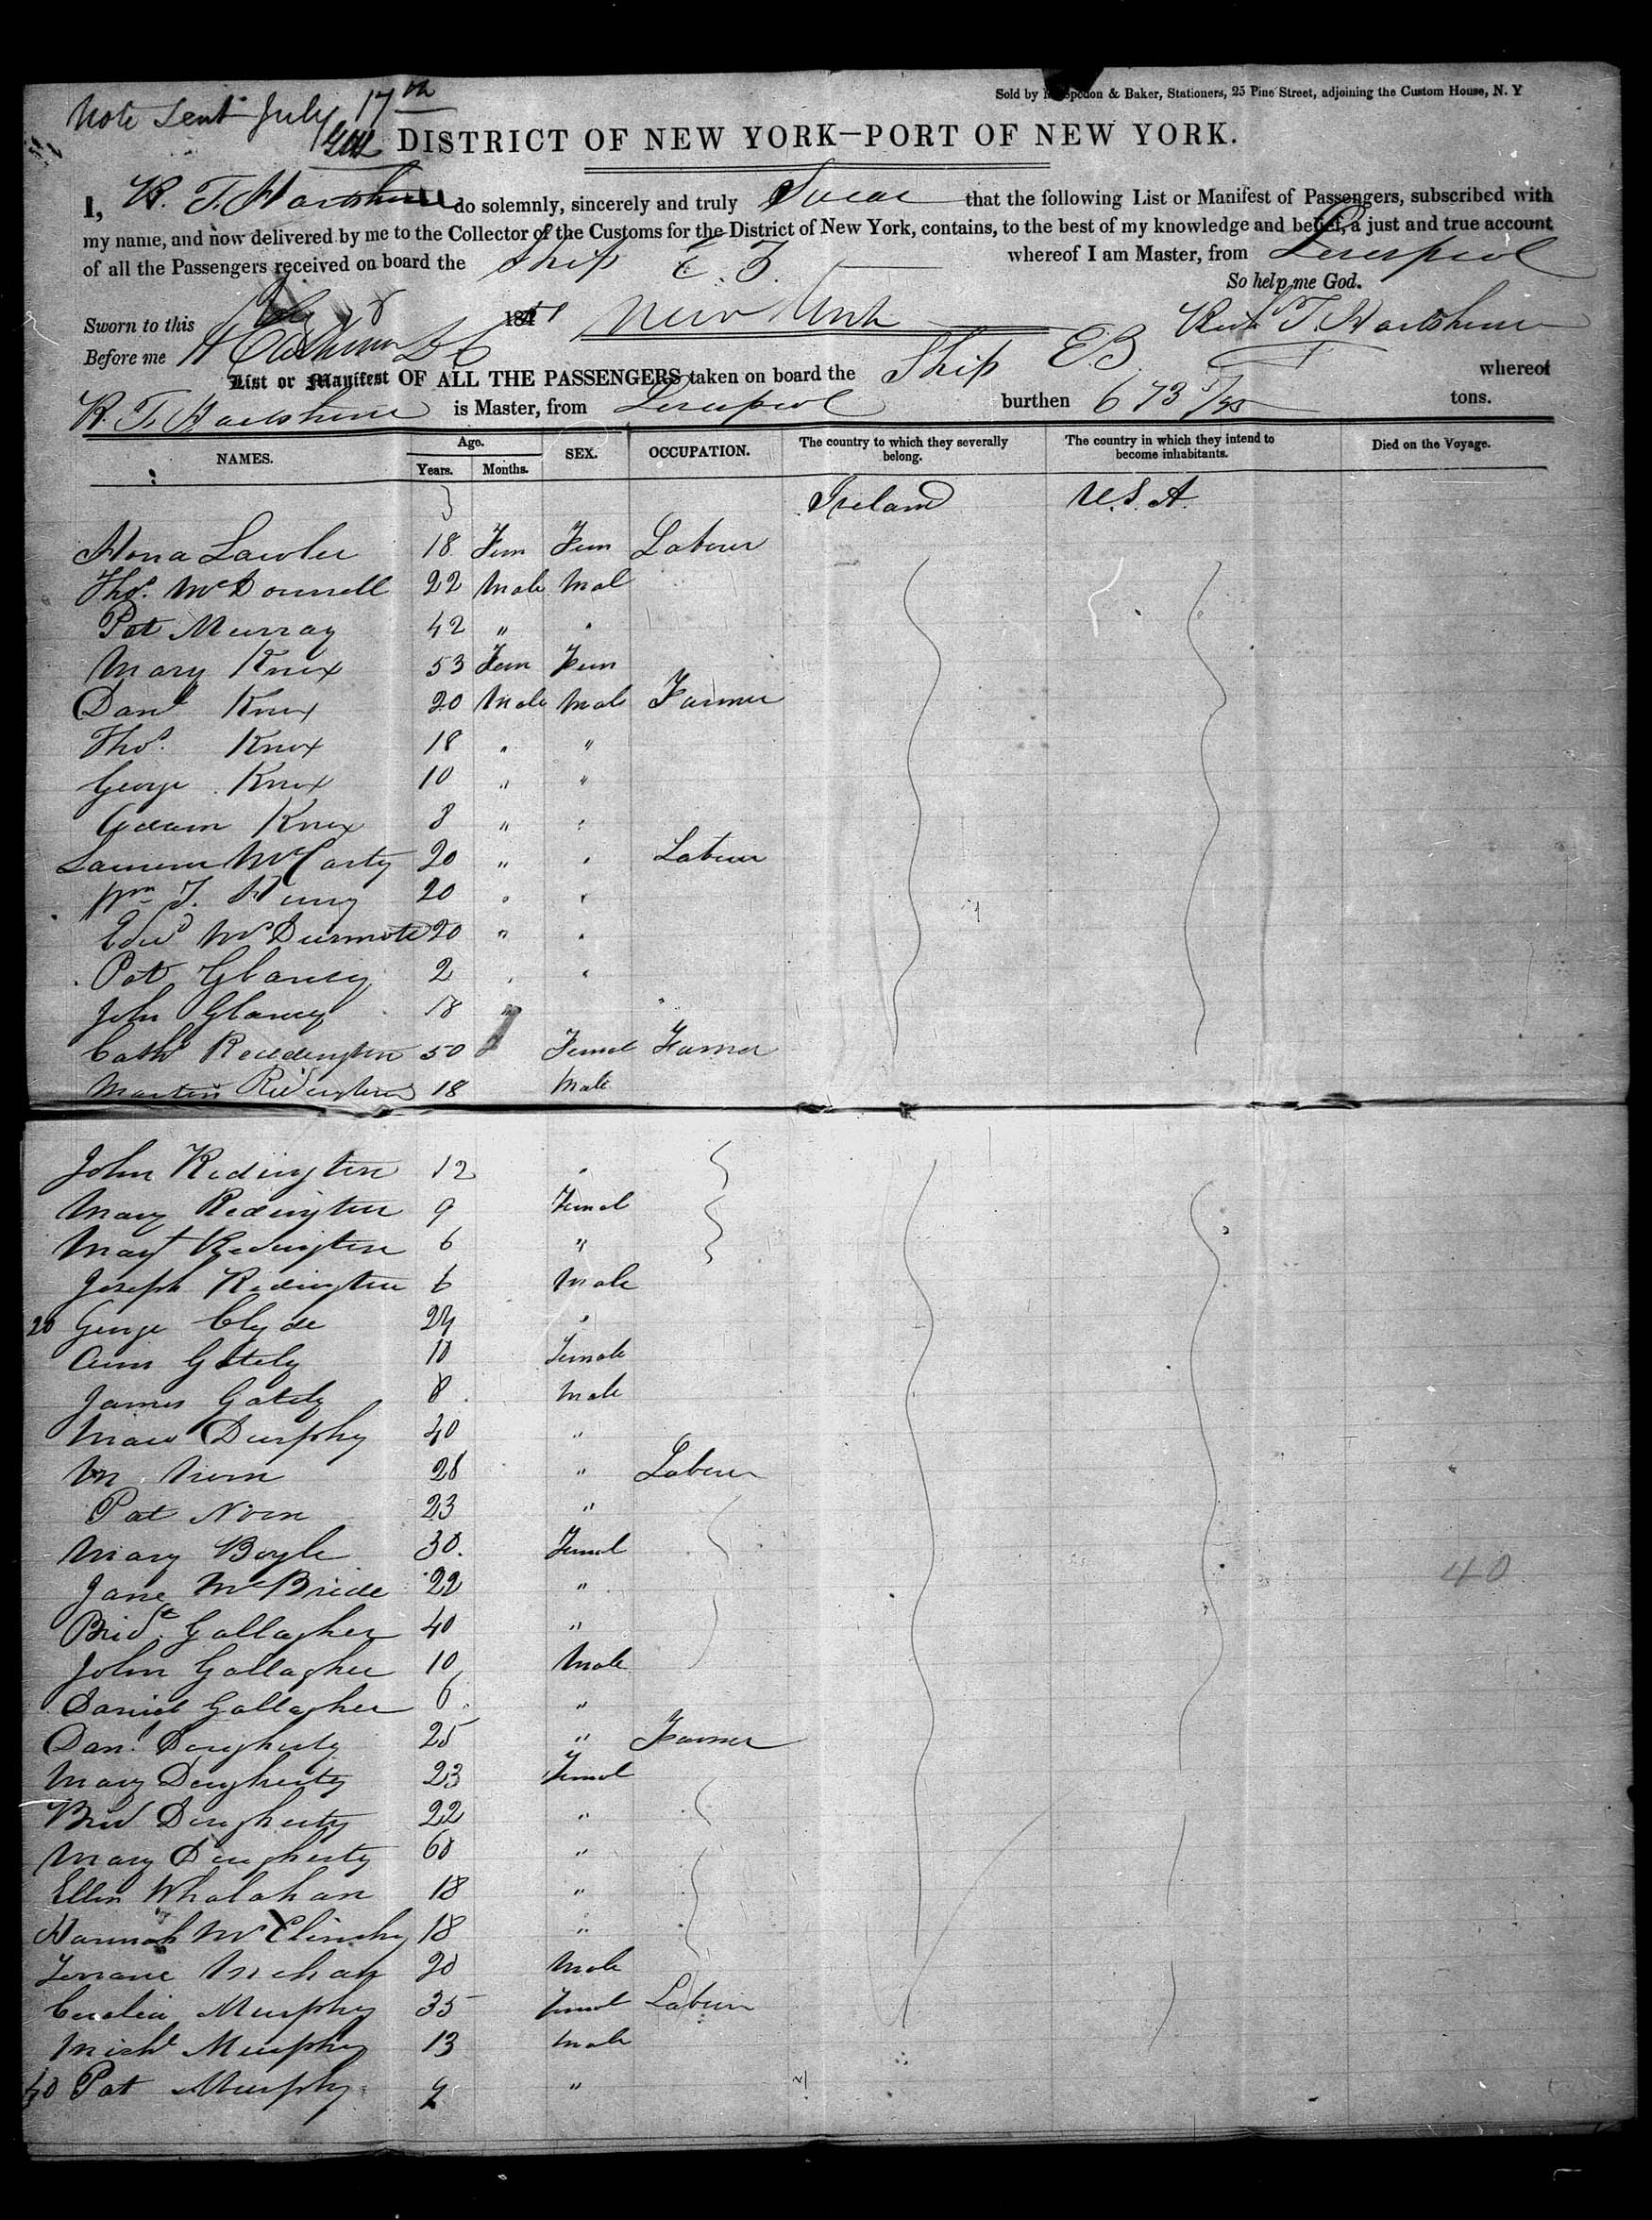 Note Sent July 17th
Sold by & Baker, Stationers, 25 Pine Street, adjoining the Custom House, N. Y
DISTRICT OF NEW YORK—PORT OF NEW YORK.
I, R. T. Hartshorne do solemnly, sincerely and truly Swear that the following List or Manifest of Passengers, subscribed with
my name, and now delivered by me to the Collector of the Customs for the District of New York, contains, to the best of my knowledge and belief, a just and true account
of all the Passengers received on board the Ship E. Z. whereof I am Master, from Liverpool
So help me God.
Sworn to this July 184 New York
Before me
List or Manifest OF ALL THE PASSENGERS taken on board the Ship E.Z. whereof
R. T. Hartshorne is Master, from Liverpool burthen 673 /95 tons.
NAMES. Age. Years. Months. SEX. OCCUPATION. The country to which they severally belong. The country in which they intend to become inhabitants. Died on the Voyage.
Ireland U.S.A.
Hona Lawler 18 Fem Fem Labourer
Thos. McDonnell 22 Male Mal
Pat Murray 42 " "
Mary Knox 53 Fem Fem
Danl Knox 20 Male Male Farmer
Thos. Knox 18 " "
George Knox 10 " "
Adam Knox 8 " "
McCarty 20 " " Labour
Wm J. 20 " "
Edwd McDurmott 20 " "
Pat Glancy 2 " "
John Glancy 18 " "
Cath Reddington 50 Femal Farmer
Martin Redington 18 Male
John Redington 12 "
Mary Redington 9 Femal
Margt Redington 6 "
Joseph Redington 6 Male
20 George Clyde 24 "
Ann Gately 10 Female
James Gately 8 Male
Durphy 40 "
M Norn 28 " Labourer
Pat Norn 23 "
Mary Boyle 30. Femal
Jane McBride 22 "
40
Bridt. Gallagher 40 "
John Gallagher 10 Male
Daniel Gallagher 6 "
Danl Dougherty 25 " Farmer
Mary Dougherty 23 Femal
Brid Dougherty 22 "
Mary Dougherty 60 "
Ellen Whalahan 18 "
Hannah McClinchy 18 "
Mehan 20 Male
Cecelia Murphy 35 Femal Labour
Michl Murphy 13 Male
40 Pat Murphy 9 "